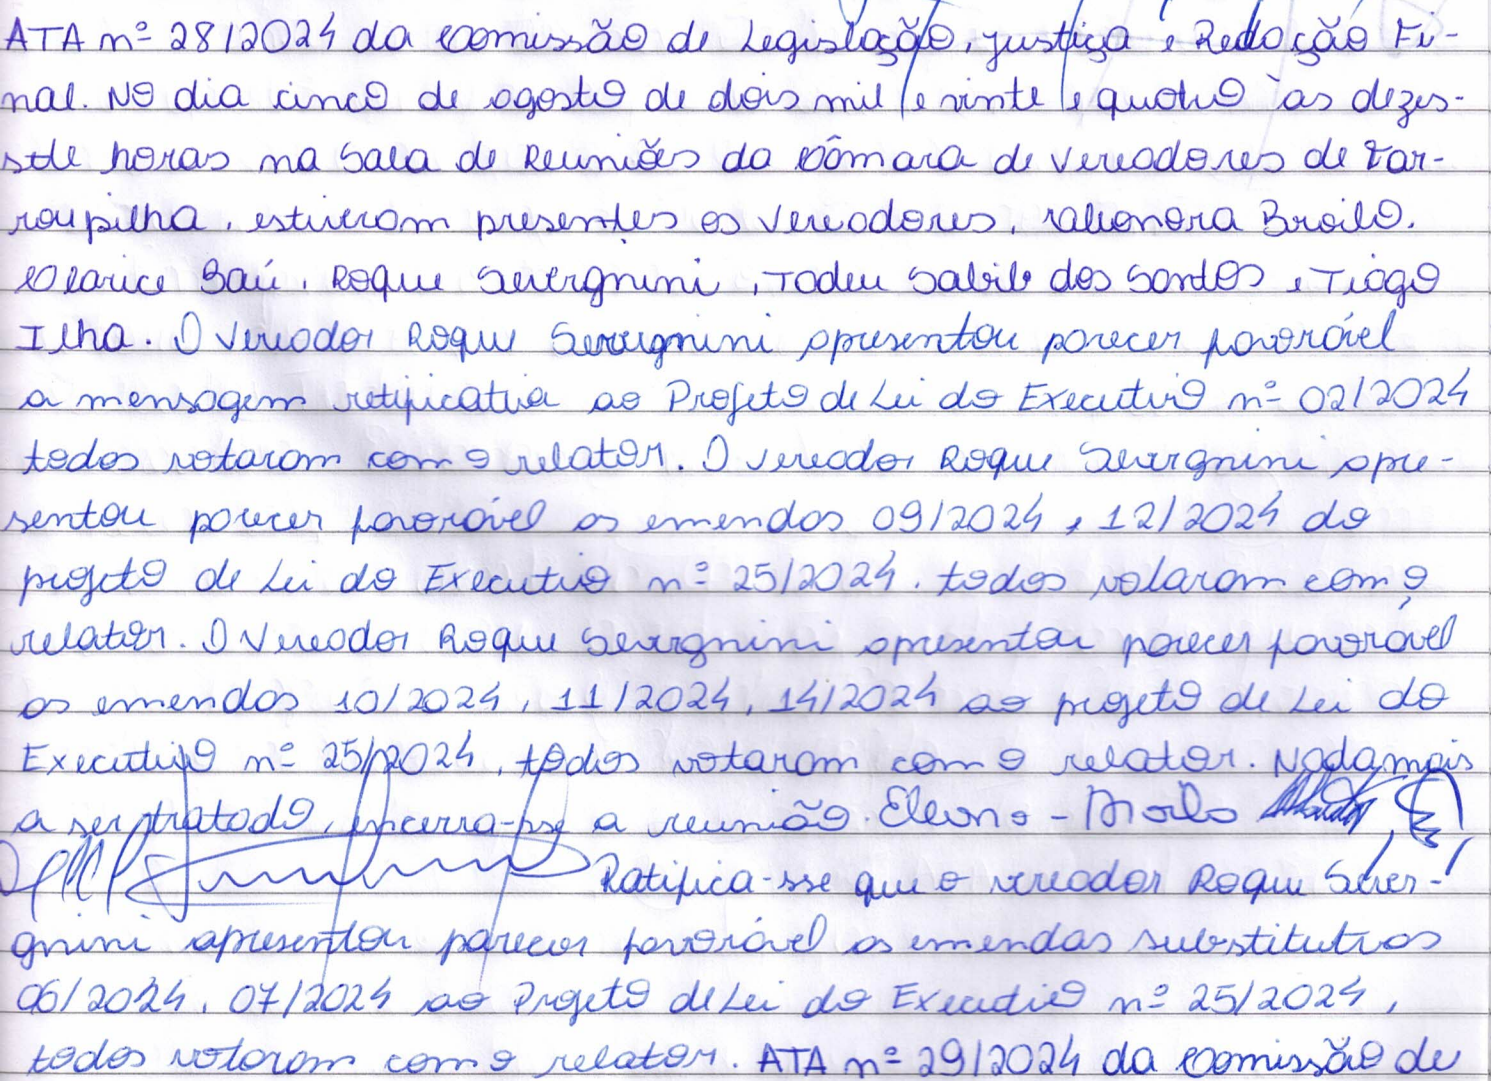 ATA nº 28/2024 da Comissão de Legislação, Justiça e Redação Fi-
nal. No dia cinco de agosto de dois mil e vinte e quatro às dezes-
sete horas na Sala de Reuniões da Câmara de Vereadores de Far-
roupilha, estiveram presentes os Vereadores, Eleonora Broilo,
Clarice Baú, Roque Severgnini, Tadeu Salib dos Santos e Tiago
Ilha. O Vereador Roque Severgnini apresentou parecer favorável
a mensagem retificativa ao Projeto de Lei do Executivo nº 02/2024
todos votaram com o relator. O Vereador Roque Severgnini apre-
sentou parecer favorável as emendas 09/2024, 12/2024 do
projeto de Lei do Executivo nº 25/2024. todos votaram com o
relator. O Vereador Roque Severgnini apresentou parecer favorável
as emendas 10/2024, 11/2024, 14/2024 ao projeto de Lei do
Executivo nº 25/2024, todos votaram com o relator. Nada mais
a ser tratado, encerra-se a reunião.
Ratifica-sse que o vereador Roque Sever-
gnini apresentou parecer favorável as emendas substitutivas
06/2024, 07/2024 ao Projeto de Lei do Executivo nº 25/2024,
todos votaram com o relator. ATA nº 29/2024 da Comissão de